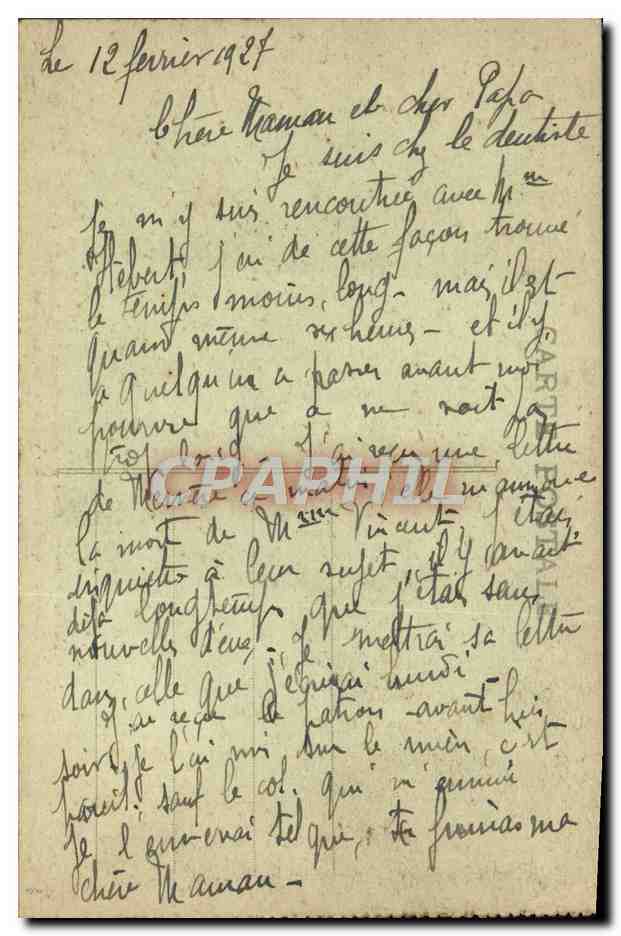 Le 12 fevrier 1927
Chère Maman et cher Papa
Je suis chez le dentiste
Je m'y suis rencontrée avec Mme
Hébert, j'ai de cette façon trouvé
le temps moins long - mais il est
quand même six heures - et il y
a quelqu'un a passer avant moi
pourvu que ce ne soit pas
trop long - J'ai reçu une lettre
de ce matin elle m'annonce
la mort de Mme Vincent, j'étais
inquiette à leur sujet, il y avait
déjà longtemps que j'étais sans
nouvelles d'eux - Je mettrai sa lettre
dans celle que j'écrirai lundi -
J'ai reçu le patron avant hier
soir, je l'ai mis sur le mien, c'est
pareil. sauf le col. qui m'ennuie
Je l'enverrai tel que, tu ma
chère Maman -
CARTE POSTALE
CPARAMA
CPAPHIL